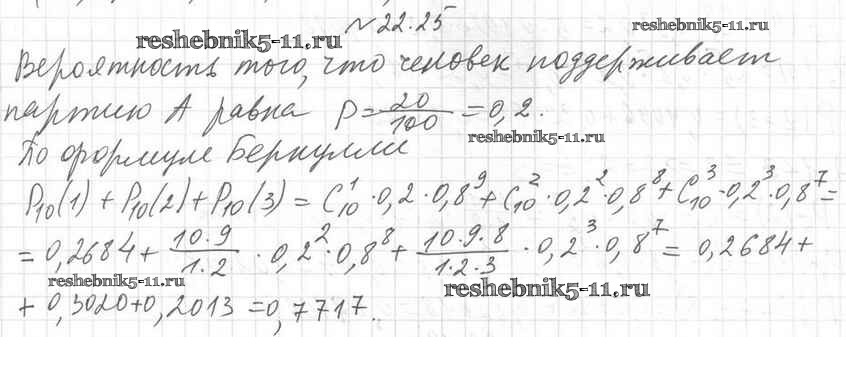 №22.25
reshebnik5-11.ru
reshebnik5-11.ru
Вероятность того, что человек поддерживает
партию А равна P=20/100=0,2.
reshebnik5-11.ru
По формуле Бернулли
P₁₀(1) + P₁₀(2) + P₁₀(3) = C₁₀¹·0,2·0,8⁹ + C₁₀²·0,2²·0,8⁸ + C₁₀³·0,2³·0,8⁷ =
= 0,2684 + (10·9)/(1·2) · 0,2²·0,8⁸ + (10·9·8)/(1·2·3) · 0,2³·0,8⁷ = 0,2684 +
reshebnik5-11.ru
reshebnik5-11.ru
+ 0,3020+0,2013 =0,7717.